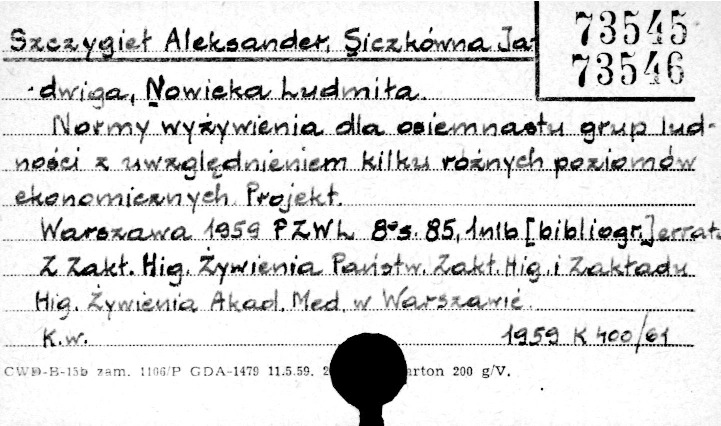 73545
73546
Szczygieł Aleksander, Siczkówna Ja-
dwiga, Nowicka Ludmiła.
Normy wyżywienia dla osiemnastu grup lud-
ności z uwzględnieniem kilku różnych poziomów
ekonomicznych. Projekt.
Warszawa 1959 PZWL 8° s. 85, 1 nlb [bibliogr.] errata
Z Zakł. Hig. Żywienia Państw. Zakł. Hig. i Zakładu
Hig. Żywienia Akad. Med. w Warszawie.
K.w. 1959 K 400/61
CWD-B-15b zam. 1106/P GDA-1479 11.5.59. arton 200 g/V.